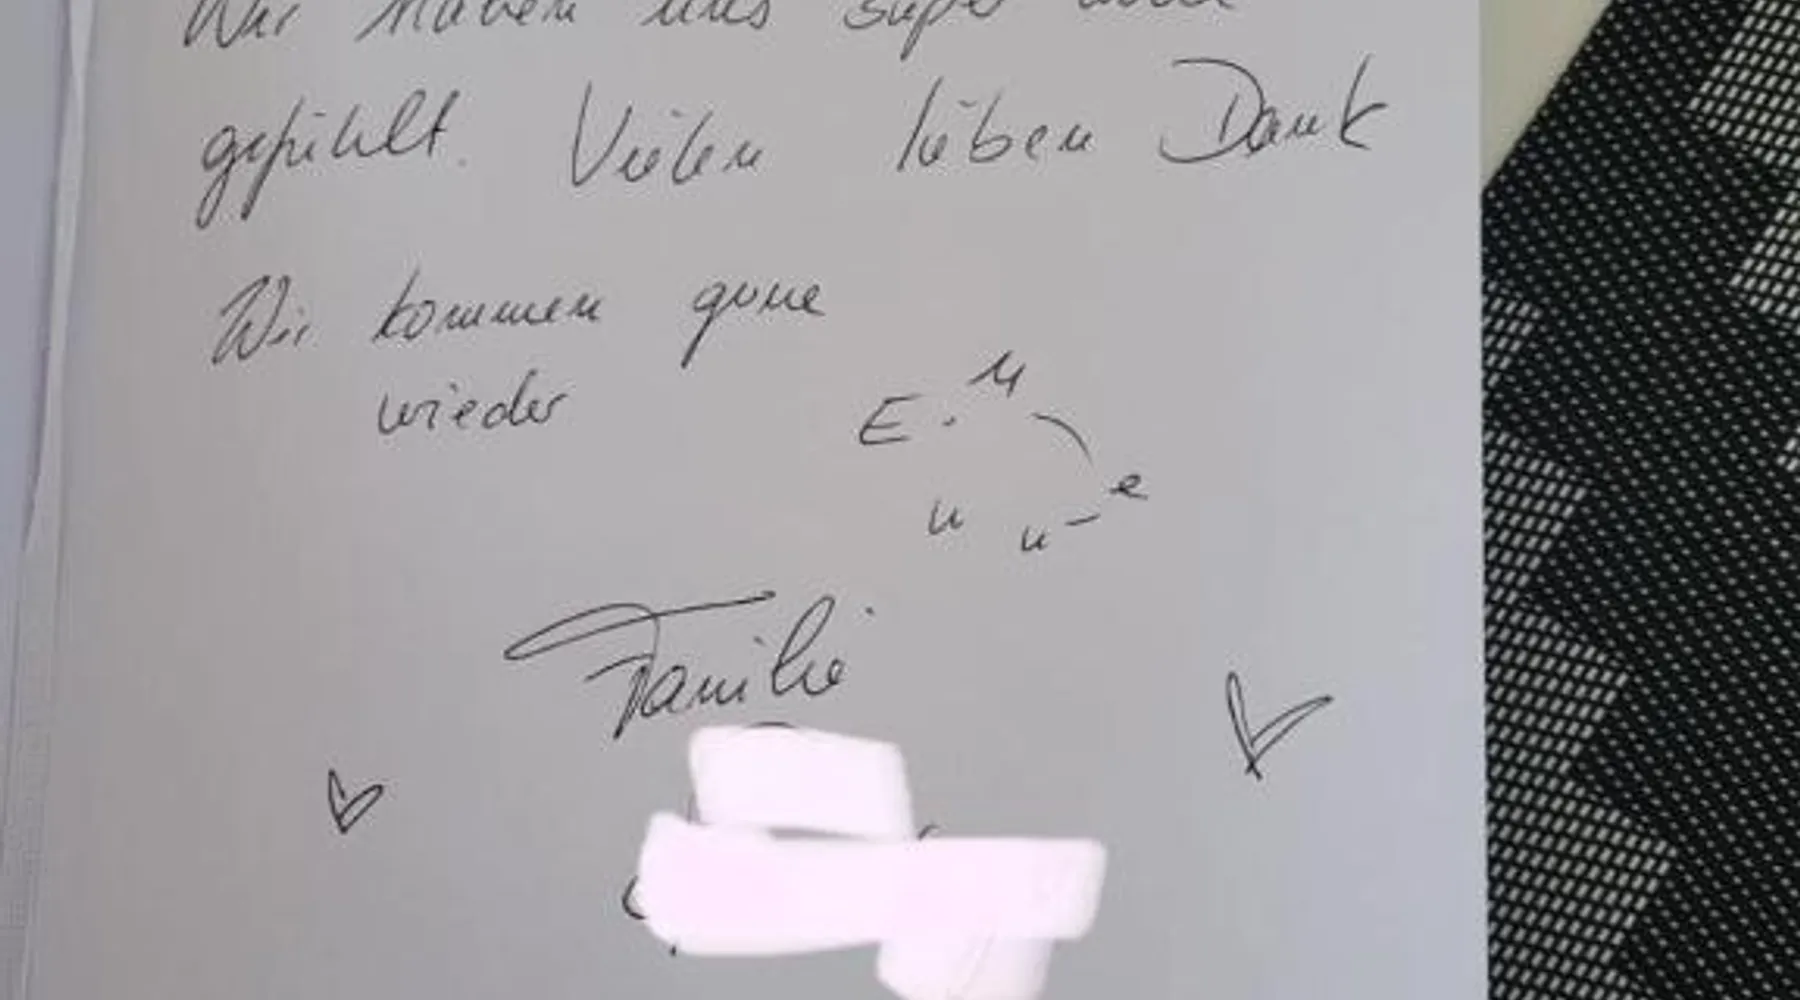 Wir haben uns super wohl
gefühlt. Vielen lieben Dank
Wir kommen gerne
wieder
E. M
e
u u
Familie